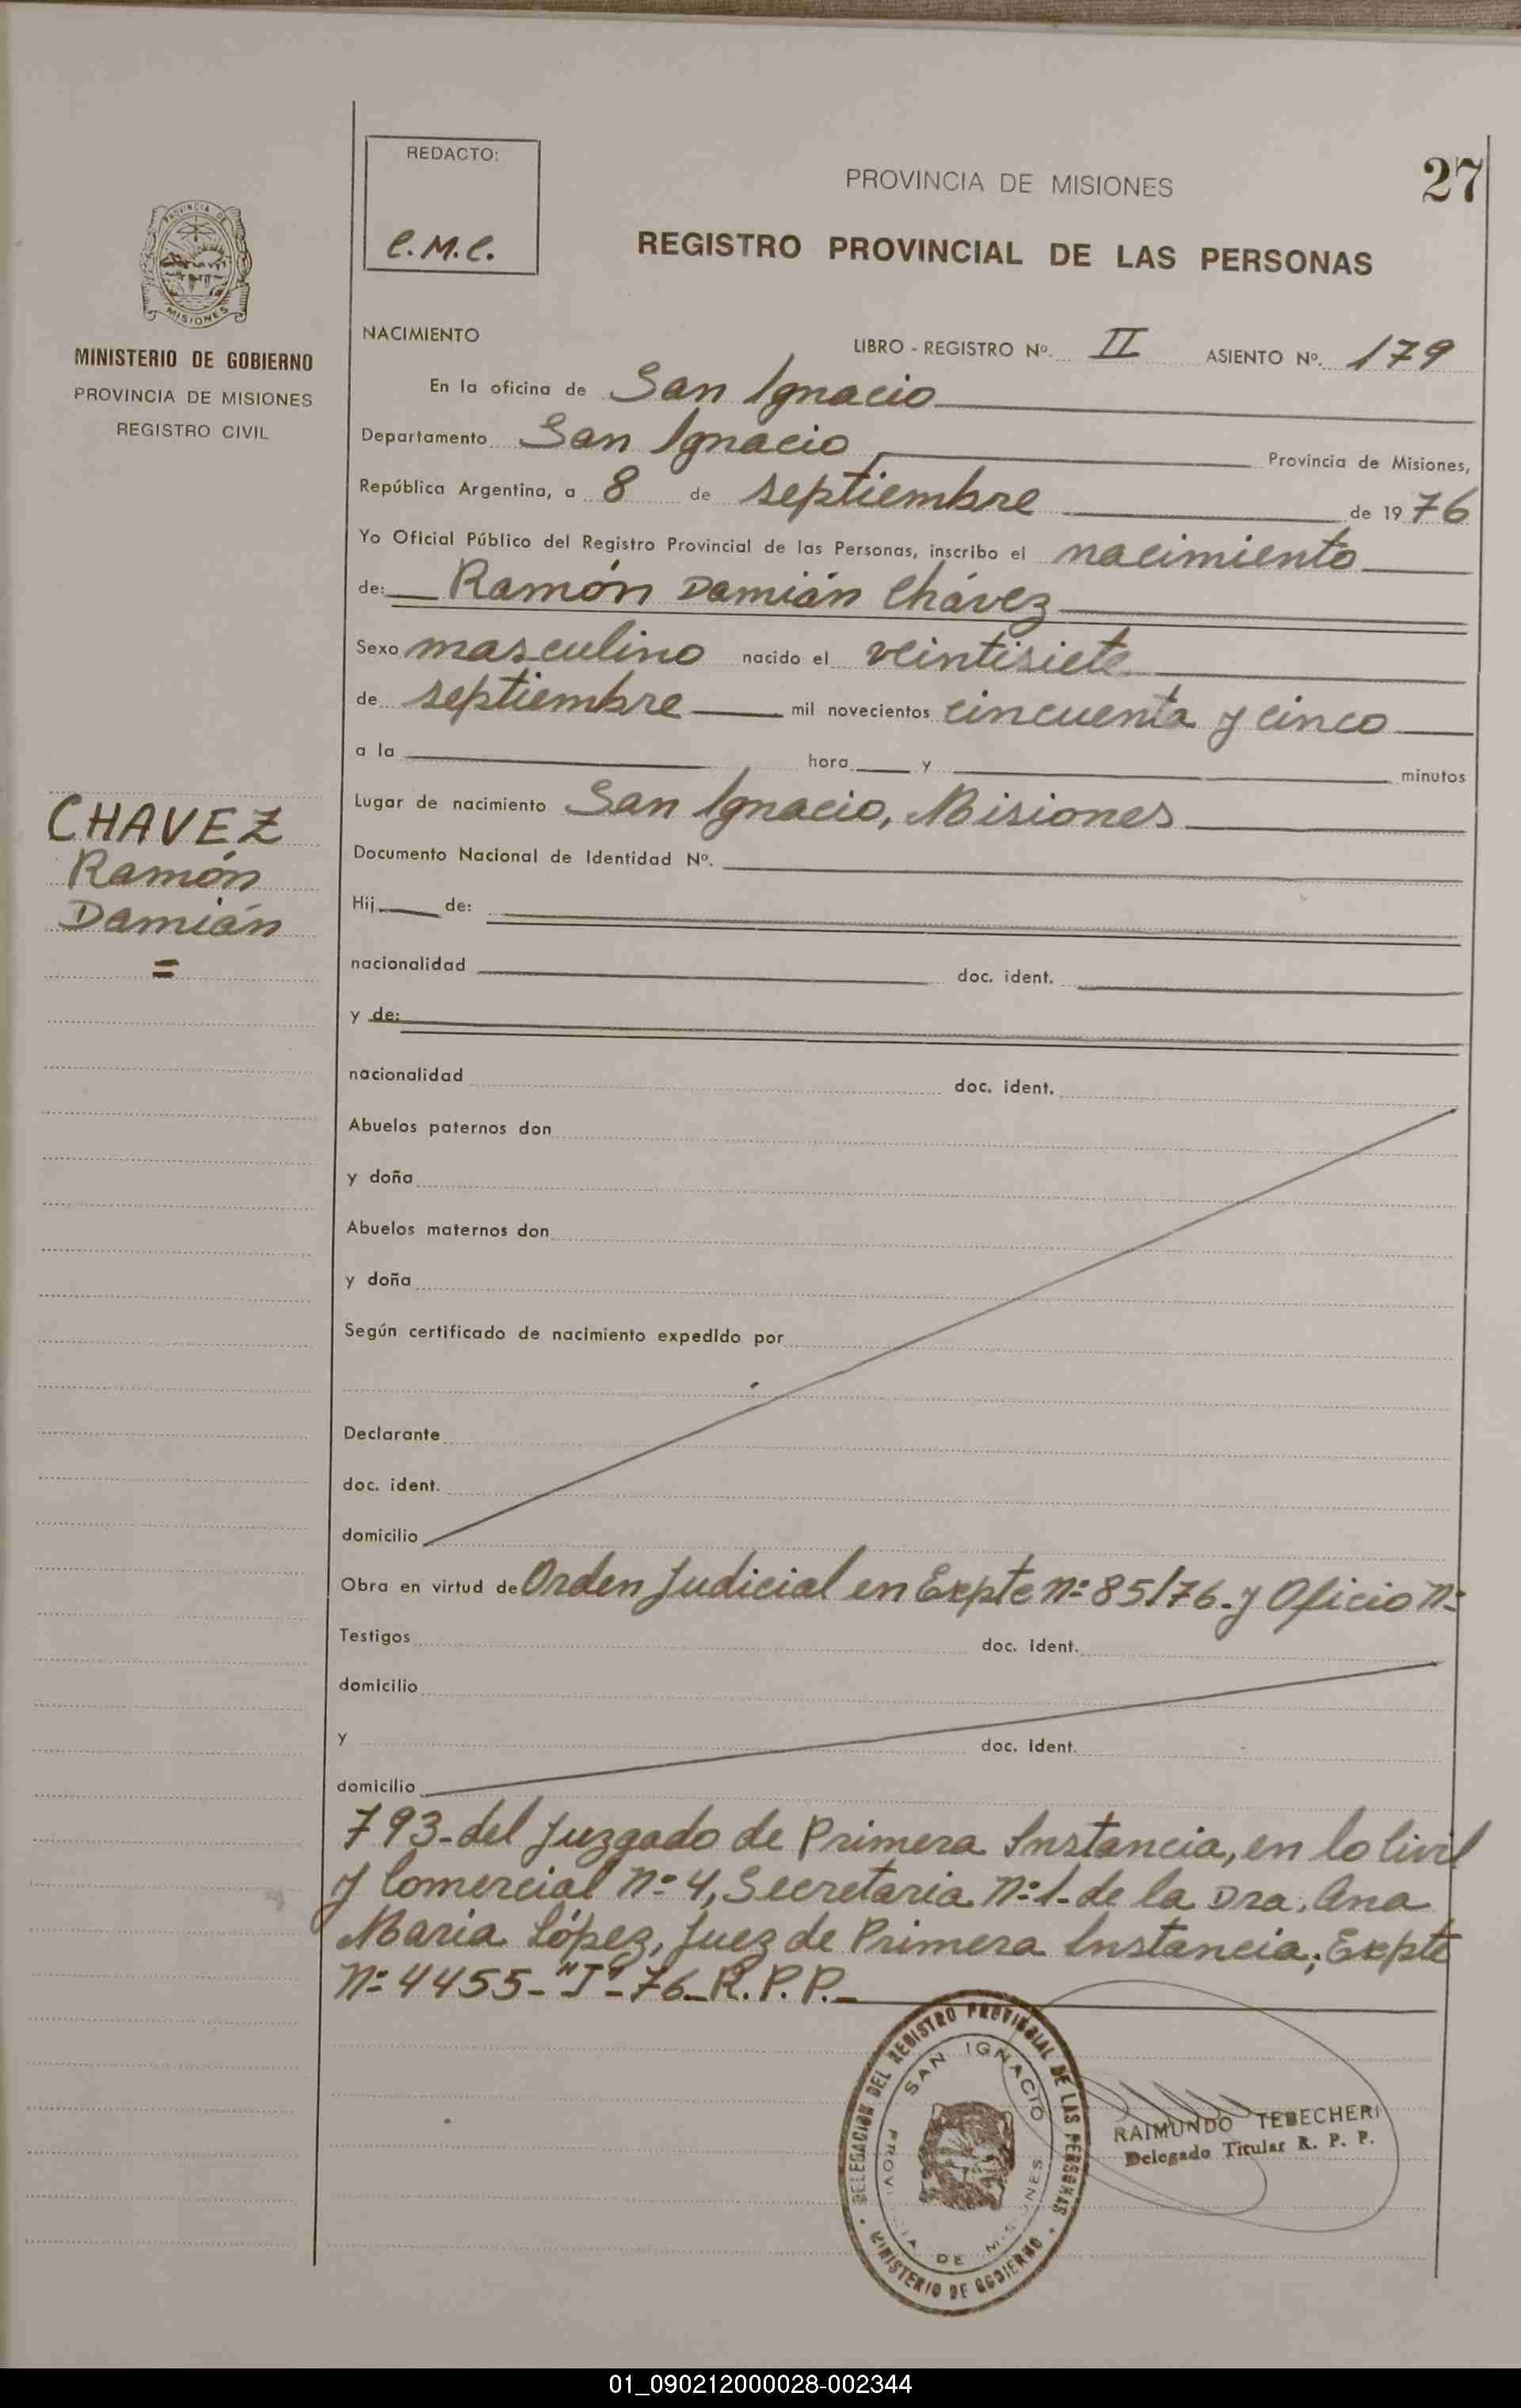 REDACTO:
C.M.C.
PROVINCIA DE MISIONES
27
REGISTRO PROVINCIAL DE LAS PERSONAS
PROVINCIA DE
MISIONES
MINISTERIO DE GOBIERNO
PROVINCIA DE MISIONES
REGISTRO CIVIL
NACIMIENTO
LIBRO - REGISTRO Nº. II ASIENTO Nº. 179
En la oficina de San Ignacio
Departamento San Ignacio Provincia de Misiones,
República Argentina, a 8 de septiembre de 1976
Yo Oficial Público del Registro Provincial de las Personas, inscribo el nacimiento
de: Ramón Damián Chávez
Sexo masculino nacido el veintisiete
de septiembre mil novecientos cincuenta y cinco
a la hora y minutos
Lugar de nacimiento San Ignacio, Misiones
CHAVEZ
Ramón
Damián
=
Documento Nacional de Identidad Nº.
Hij de:
nacionalidad doc. ident.
y de:
nacionalidad doc. ident.
Abuelos paternos don
y doña
Abuelos maternos don
y doña
Según certificado de nacimiento expedido por
Declarante
doc. ident.
domicilio
Obra en virtud de Orden Judicial en Expte nº 85/76.y Oficio nº
Testigos doc. ident.
domicilio
y doc. ident.
domicilio
793-del Juzgado de Primera Instancia, en lo Civil
y Comercial nº 4, Secretaria nº 1-de la Dra. Ana
Maria López, Juez de Primera Instancia; Expte
nº 4455-"J"-76-R.P.P.-
DELEGACION DEL REGISTRO PROVINCIAL DE LAS PERSONAS
SAN IGNACIO
PROVINCIA DE MISIONES
MINISTERIO DE GOBIERNO
RAIMUNDO TEBECHERI
Delegado Titular R. P. P.
01_090212000028-002344